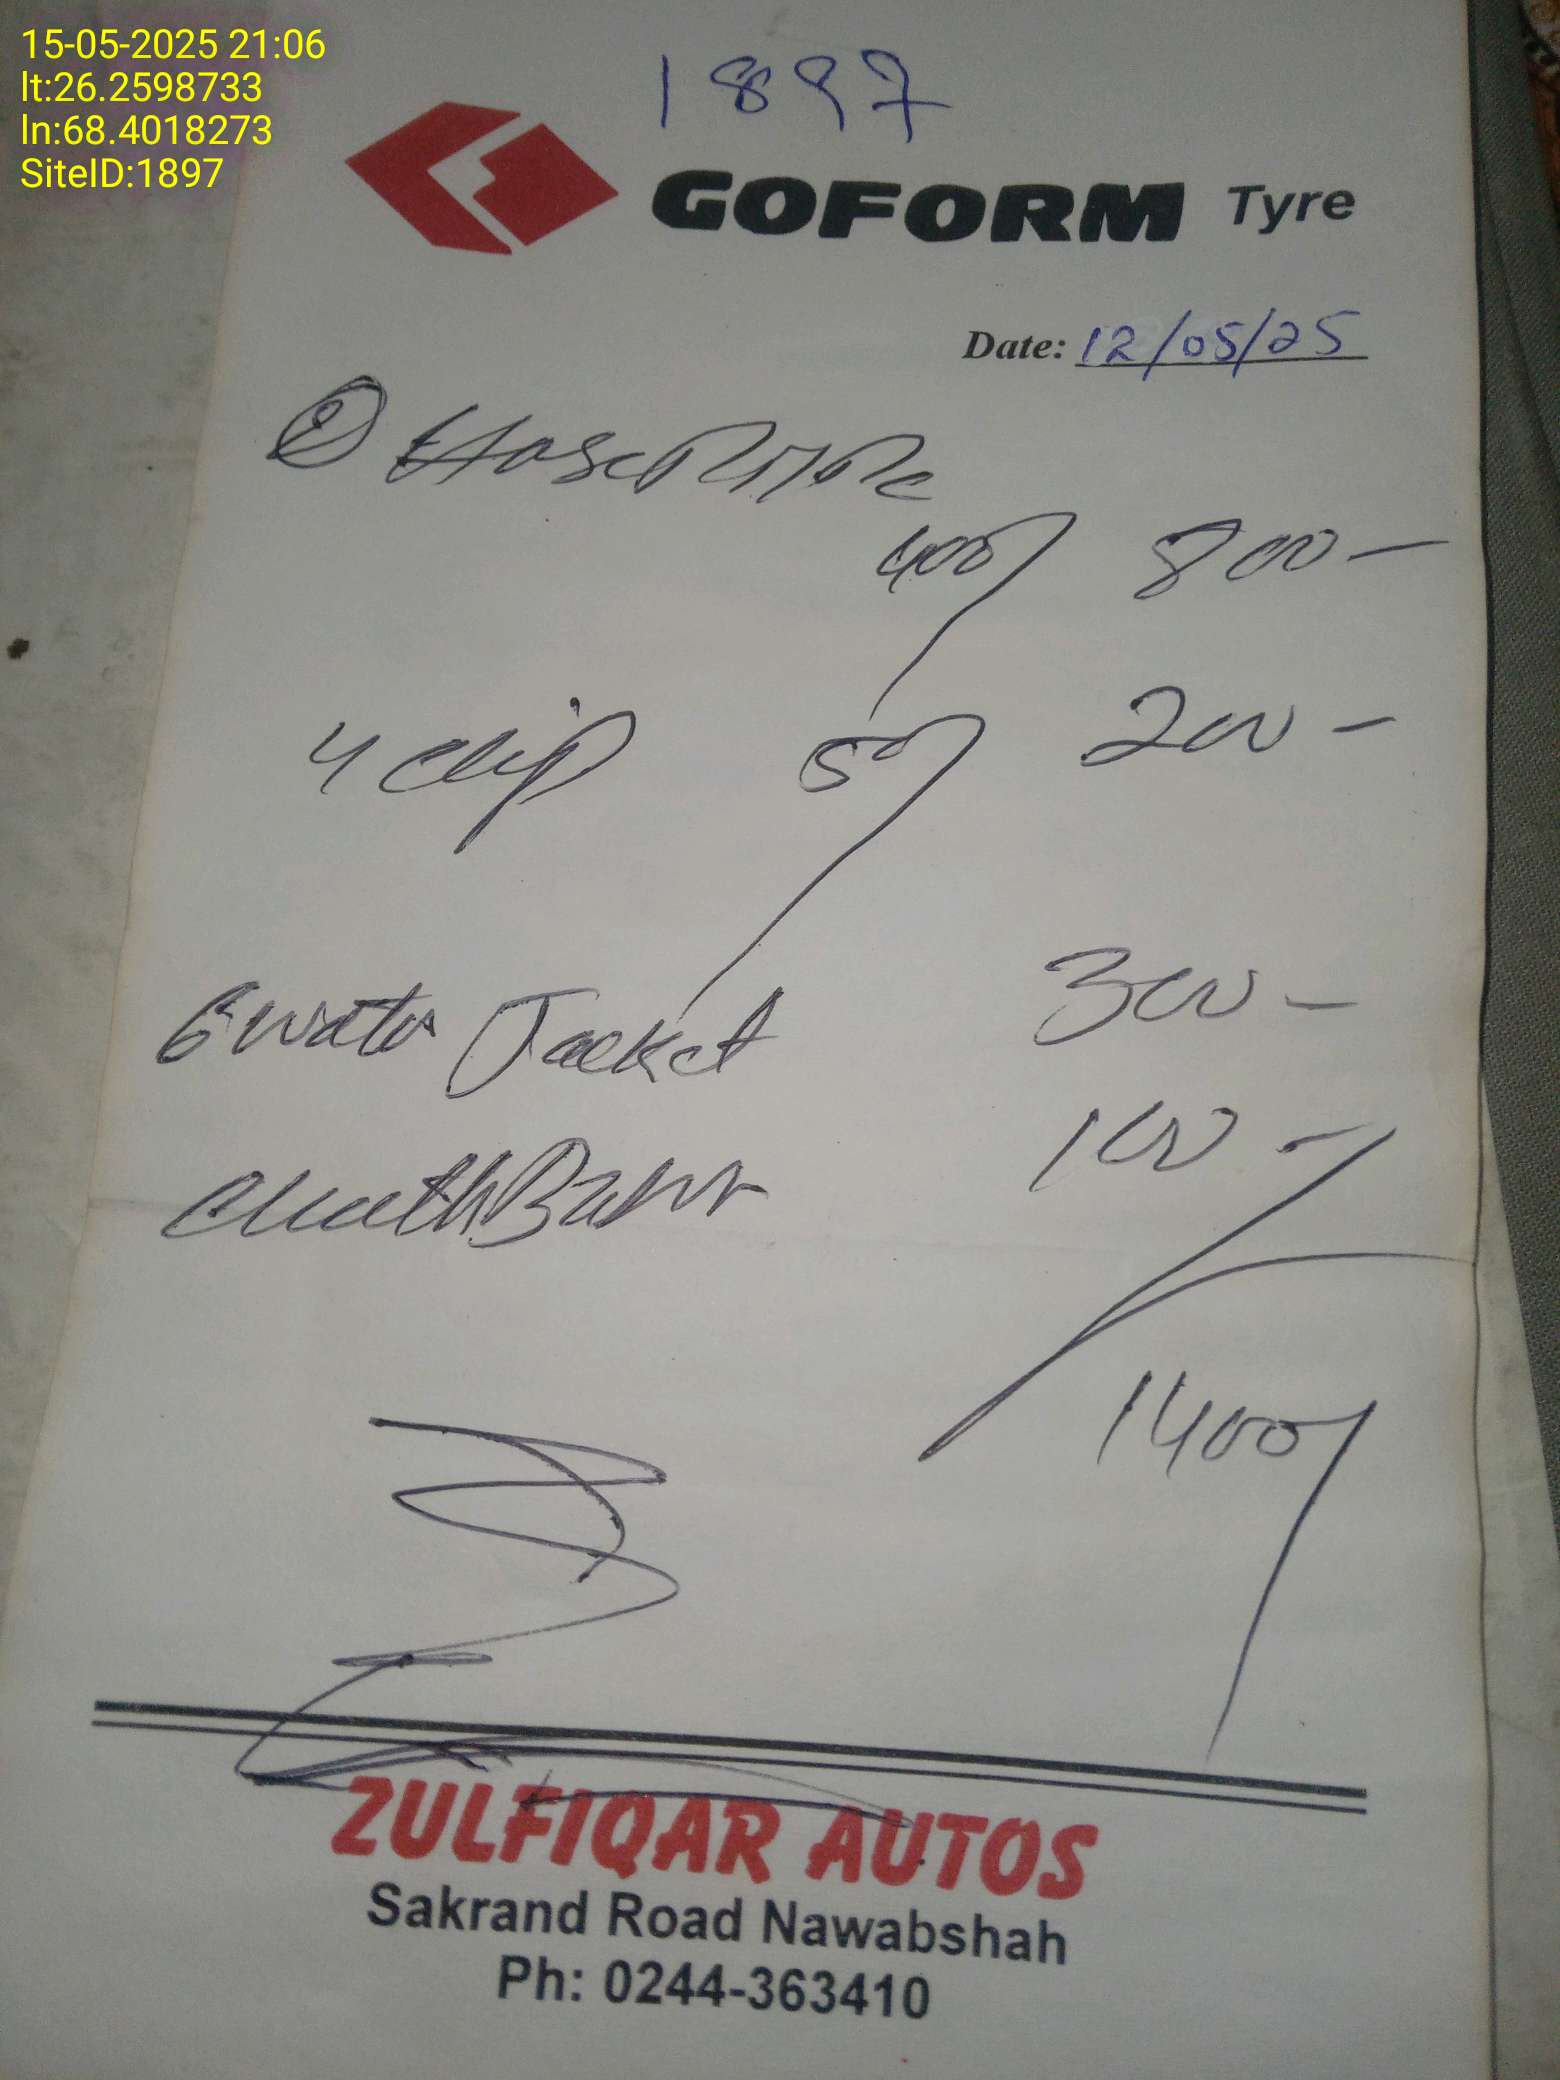 15-05-2025 21:06
lt:26.2598733
ln:68.4018273
SiteID:1897
1897
GOFORM Tyre
Date: 12/05/25
② Hose Pipe
400/ 800-
4 clip 50/ 200-
6 water Jacket 300-
100-
1400/
ZULFIQAR AUTOS
Sakrand Road Nawabshah
Ph: 0244-363410